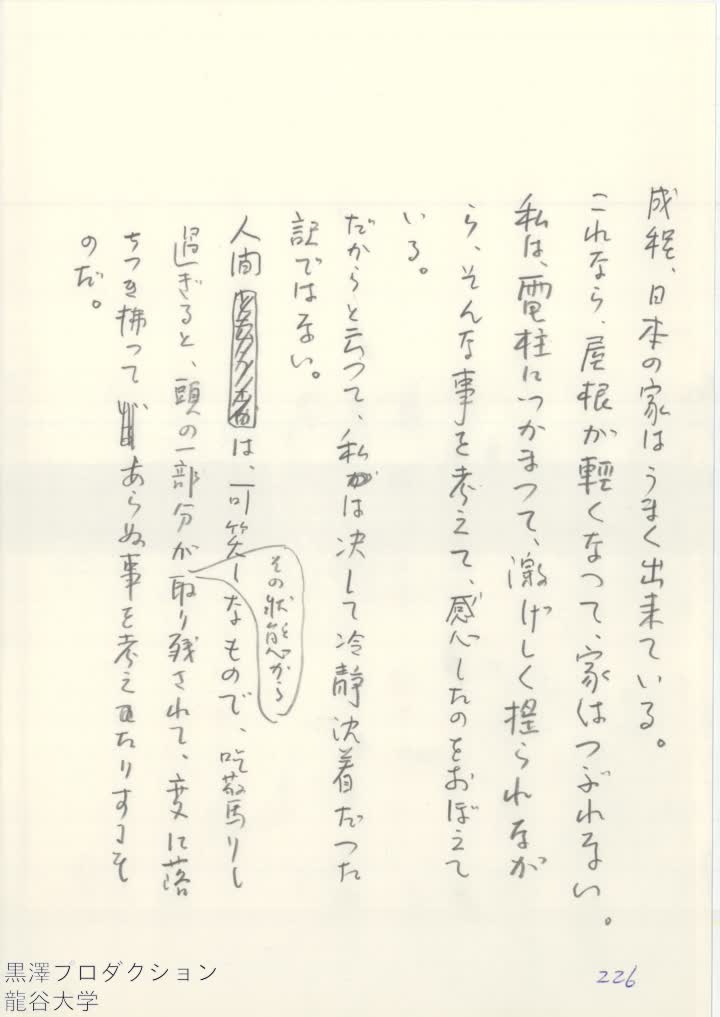 成程、日本の家はうまく出来ている。
これなら、屋根が軽くなつて、家はつぶれない。
私は、電柱につかまつて、激げしく揺られなが
ら、そんな事を考えて、感心したのをおぼえて
いる。
だからと云つて、私は決して冷静沈着だつた
訳ではない。
人間は、可笑しなもので、吃驚りし
過ぎると、頭の一部分がその状態から取り残されて、変に落
ちつき拂つてあらぬ事を考えたりするも
のだ。
226
黒澤プロダクション
龍谷大学